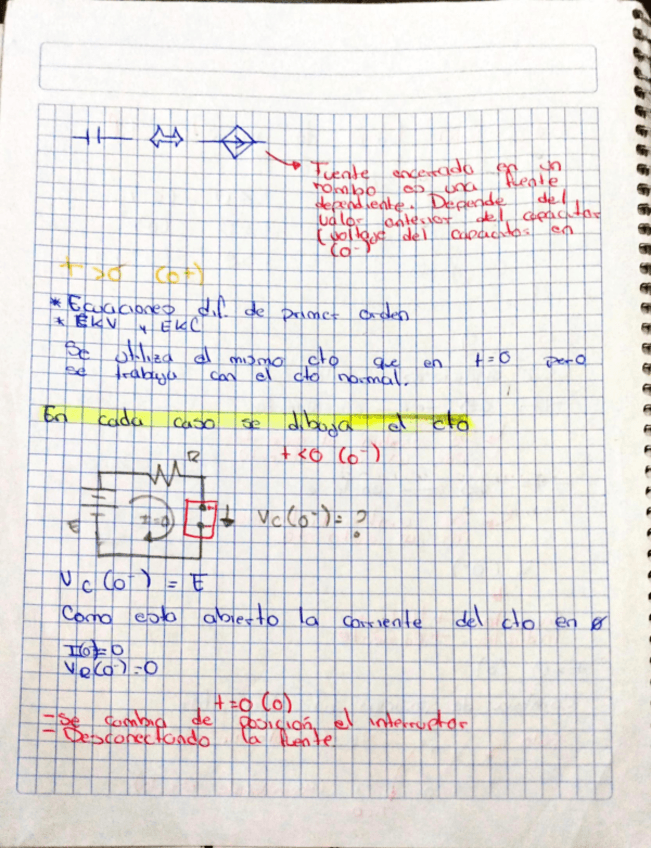 Fuente encerrada en un
rombo es una fuente
dependiente. Depende del
valor anterior del capacitor
(voltaje del capacitor en
(0-)
t>0 (0+)
* Ecuaciones dif. de primer orden
* EKV y EKC
Se utiliza el mismo cto que en t=0 pero
se trabaja con el cto normal.
En cada caso se dibuja el cto
t<0 (0-)
R
E I=0 + Vc(0-)=?
Vc(0-) = E
Como esta abierto la corriente del cto en
I(0)=0
VR(0-)=0
t=0(0)
-Se cambia de posición el interruptor
-Desconectando la fuente